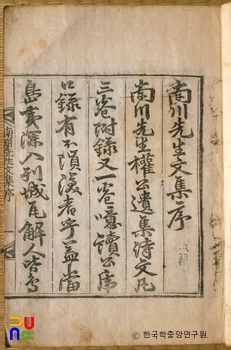 南川先生文集序
南川先生權公遺集詩文凡
三卷附錄又一卷噫讀公席
口錄有不隕淚者乎蓋當
島夷深入列城瓦解人皆鳥
南川先生文集序
한국학중앙연구원